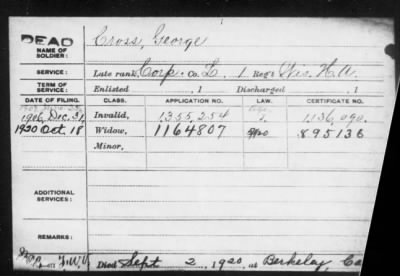 DEAD
NAME OF SOLDIER: Cross, George
SERVICE: Late rank Corp. Co. L, 1 Reg't Wis. H.A.
TERM OF SERVICE: Enlisted , 1 Discharged , 1
DATE OF FILING. CLASS. APPLICATION NO. LAW. CERTIFICATE NO.
1906 Dec. 31, Invalid, 1355,254 1,136,090.
1920 Oct. 18 Widow, 1164807 895136
Minor,
ADDITIONAL SERVICES:
REMARKS:
Died Sept 2, 1920, at Berkeley, Ca